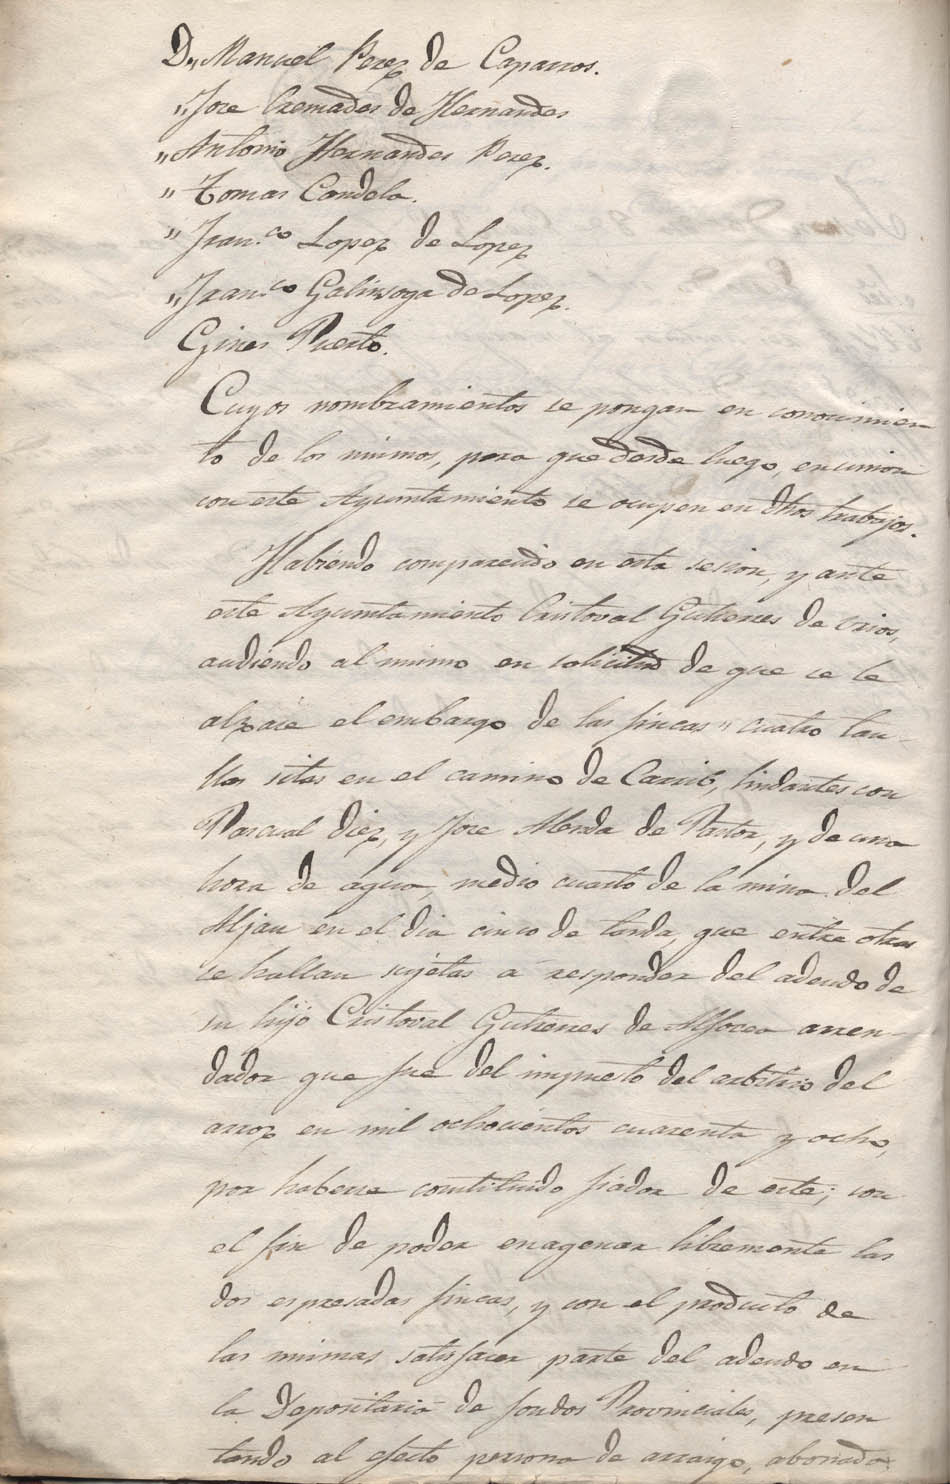 D,, Manuel Perez de Caparros.
,, Jose Cremades de Hernandes
,, Antonio Hernandes Perez.
,, Tomas Candela.
,, Fran.co Lopez de Lopez
,, Fran.co Galinsoga de Lopez.
Gines Puerto.
Cuyos nombramientos se pongan en conocimien
to de los mimos, para que desde luego, en union
con este Ayuntamiento se ocupen en dhos trabajos.
Habiendo comparecido en esta sesion, y ante
este Ayuntamiento Cristoval Gutierres de
audiendo al mimo en solicitud de que se le
alzase el embargo de las fincas,, cuatro tau-
llas sitas en el camino de Catral, lindantes con
Pascual Diez, y Jose de Pastor, y de una
hora de agua, medio cuarto de la mina del
Aljau en el dia cinco de tanda, que entre otras
se hallan sujetas á responder del adeudo de
su hijo Cristoval Gutierres de Alfocea arren-
dador que fue del impuesto del arbitrio del
arroz en mil ochocientos cuarenta y ocho,
por haberse constituido fiador de este; con
el fin de poder enagenar libremente las
dos espresadas fincas, y con el producto de
las mimas satisfacer parte del adeudo en
la Depositaria de fondos Provinciales, presen
tando al efecto persona de arraigo, abonada